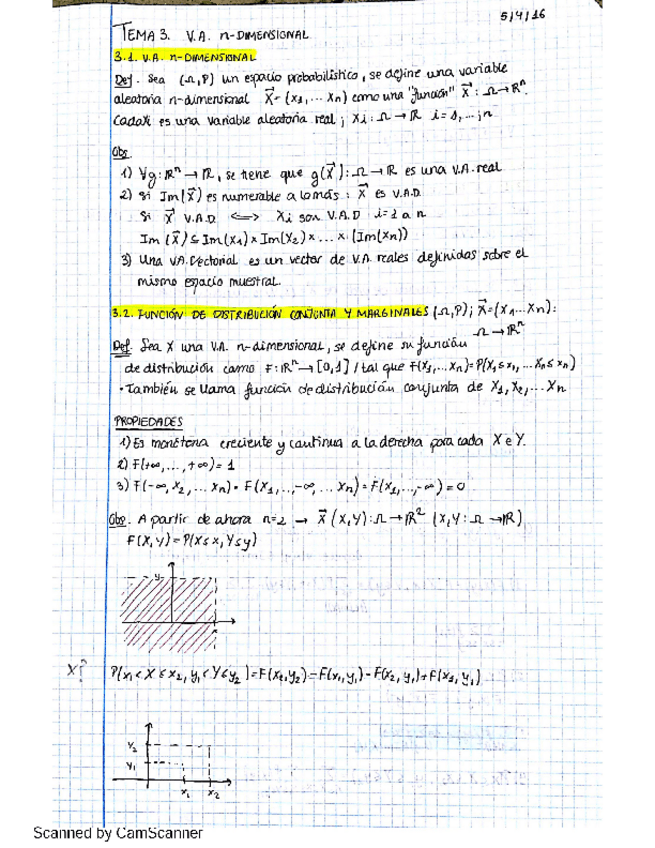 5/4/16
TEMA 3. V.A. n-DIMENSIONAL
3.1. V.A. n-DIMENSIONAL
Def. Sea (Ω,P) un espacio probabilístico, se define una variable
aleatoria n-dimensional X⃗=(x₁,... Xn) como una "función" X⃗: Ω→ℝⁿ.
Cada Xi es una variable aleatoria real; Xi: Ω→ℝ i=1,...,n
Obs
1) ∀g: ℝⁿ→ℝ, se tiene que g(X⃗): Ω→ℝ es una V.A. real
2) Si Im(X⃗) es numerable a lo más: X⃗ es V.A.D
Si X⃗ V.A.D ⟺ Xi son V.A.D i=1 a n
Im (X⃗) ⊆ Im(X₁) x Im(X₂) x ... x (Im(Xn))
3) Una V.A. Vectorial es un vector de V.A. reales definidas sobre el
mismo espacio muestral.
3.2. FUNCIÓN DE DISTRIBUCIÓN CONJUNTA Y MARGINALES (Ω,P); X⃗=(X₁...Xn):
Ω→ℝⁿ
Def. Sea X una V.A. n-dimensional, se define su función
de distribución como F: ℝⁿ→[0,1] / tal que F(X₁,... Xn)=P(X₁≤x₁, ... Xn≤xn)
· También se llama función de distribución conjunta de X₁, X₂, ... Xn
PROPIEDADES
1) Es monótona creciente y continua a la derecha para cada X e Y.
2) F(+∞,...,+∞)=1
3) F(-∞, X₂, ... Xn) = F(X₁,..,-∞, ... Xn) = F(X₁,..,-∞)=0
Obs. A partir de ahora n=2 → X⃗ (X,Y): Ω→ℝ² (X,Y: Ω→ℝ)
F(X,Y)=P(X≤x, Y≤y)
y
X?
P(x₁<X≤x₂, y₁<Y≤y₂)=F(x₂,y₂)-F(x₁,y₂)-F(x₂,y₁)+F(x₁,y₁)
y₂
y₁
x₁ x₂
Scanned by CamScanner